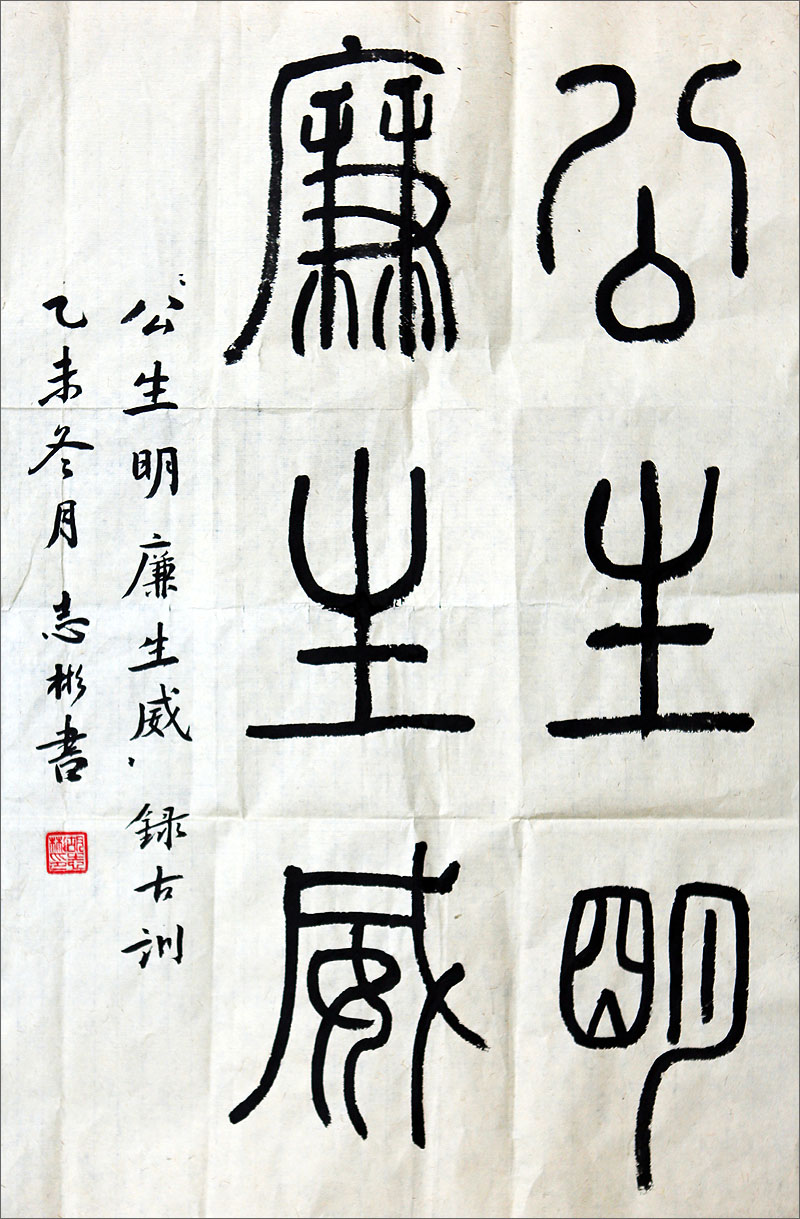 公生明
廉生威
“公生明廉生威”，録古訓
乙未冬月志彬書